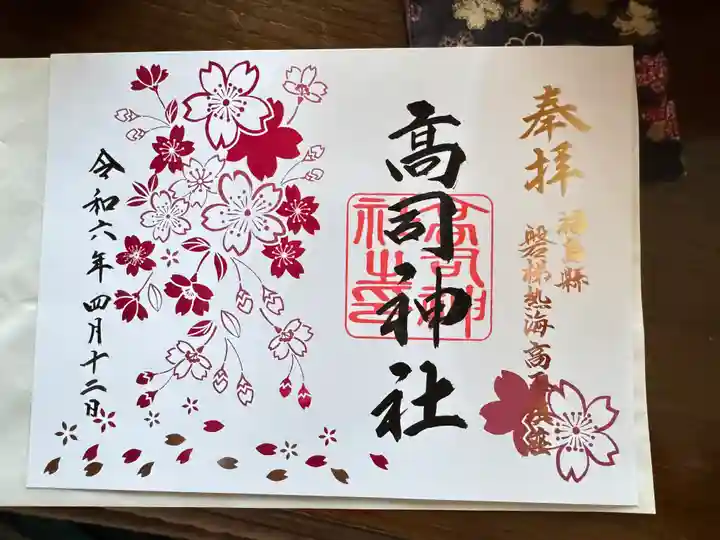 奉拝
福島縣
磐梯熱海高玉鎮座
高司神社
令和六年四月十二日